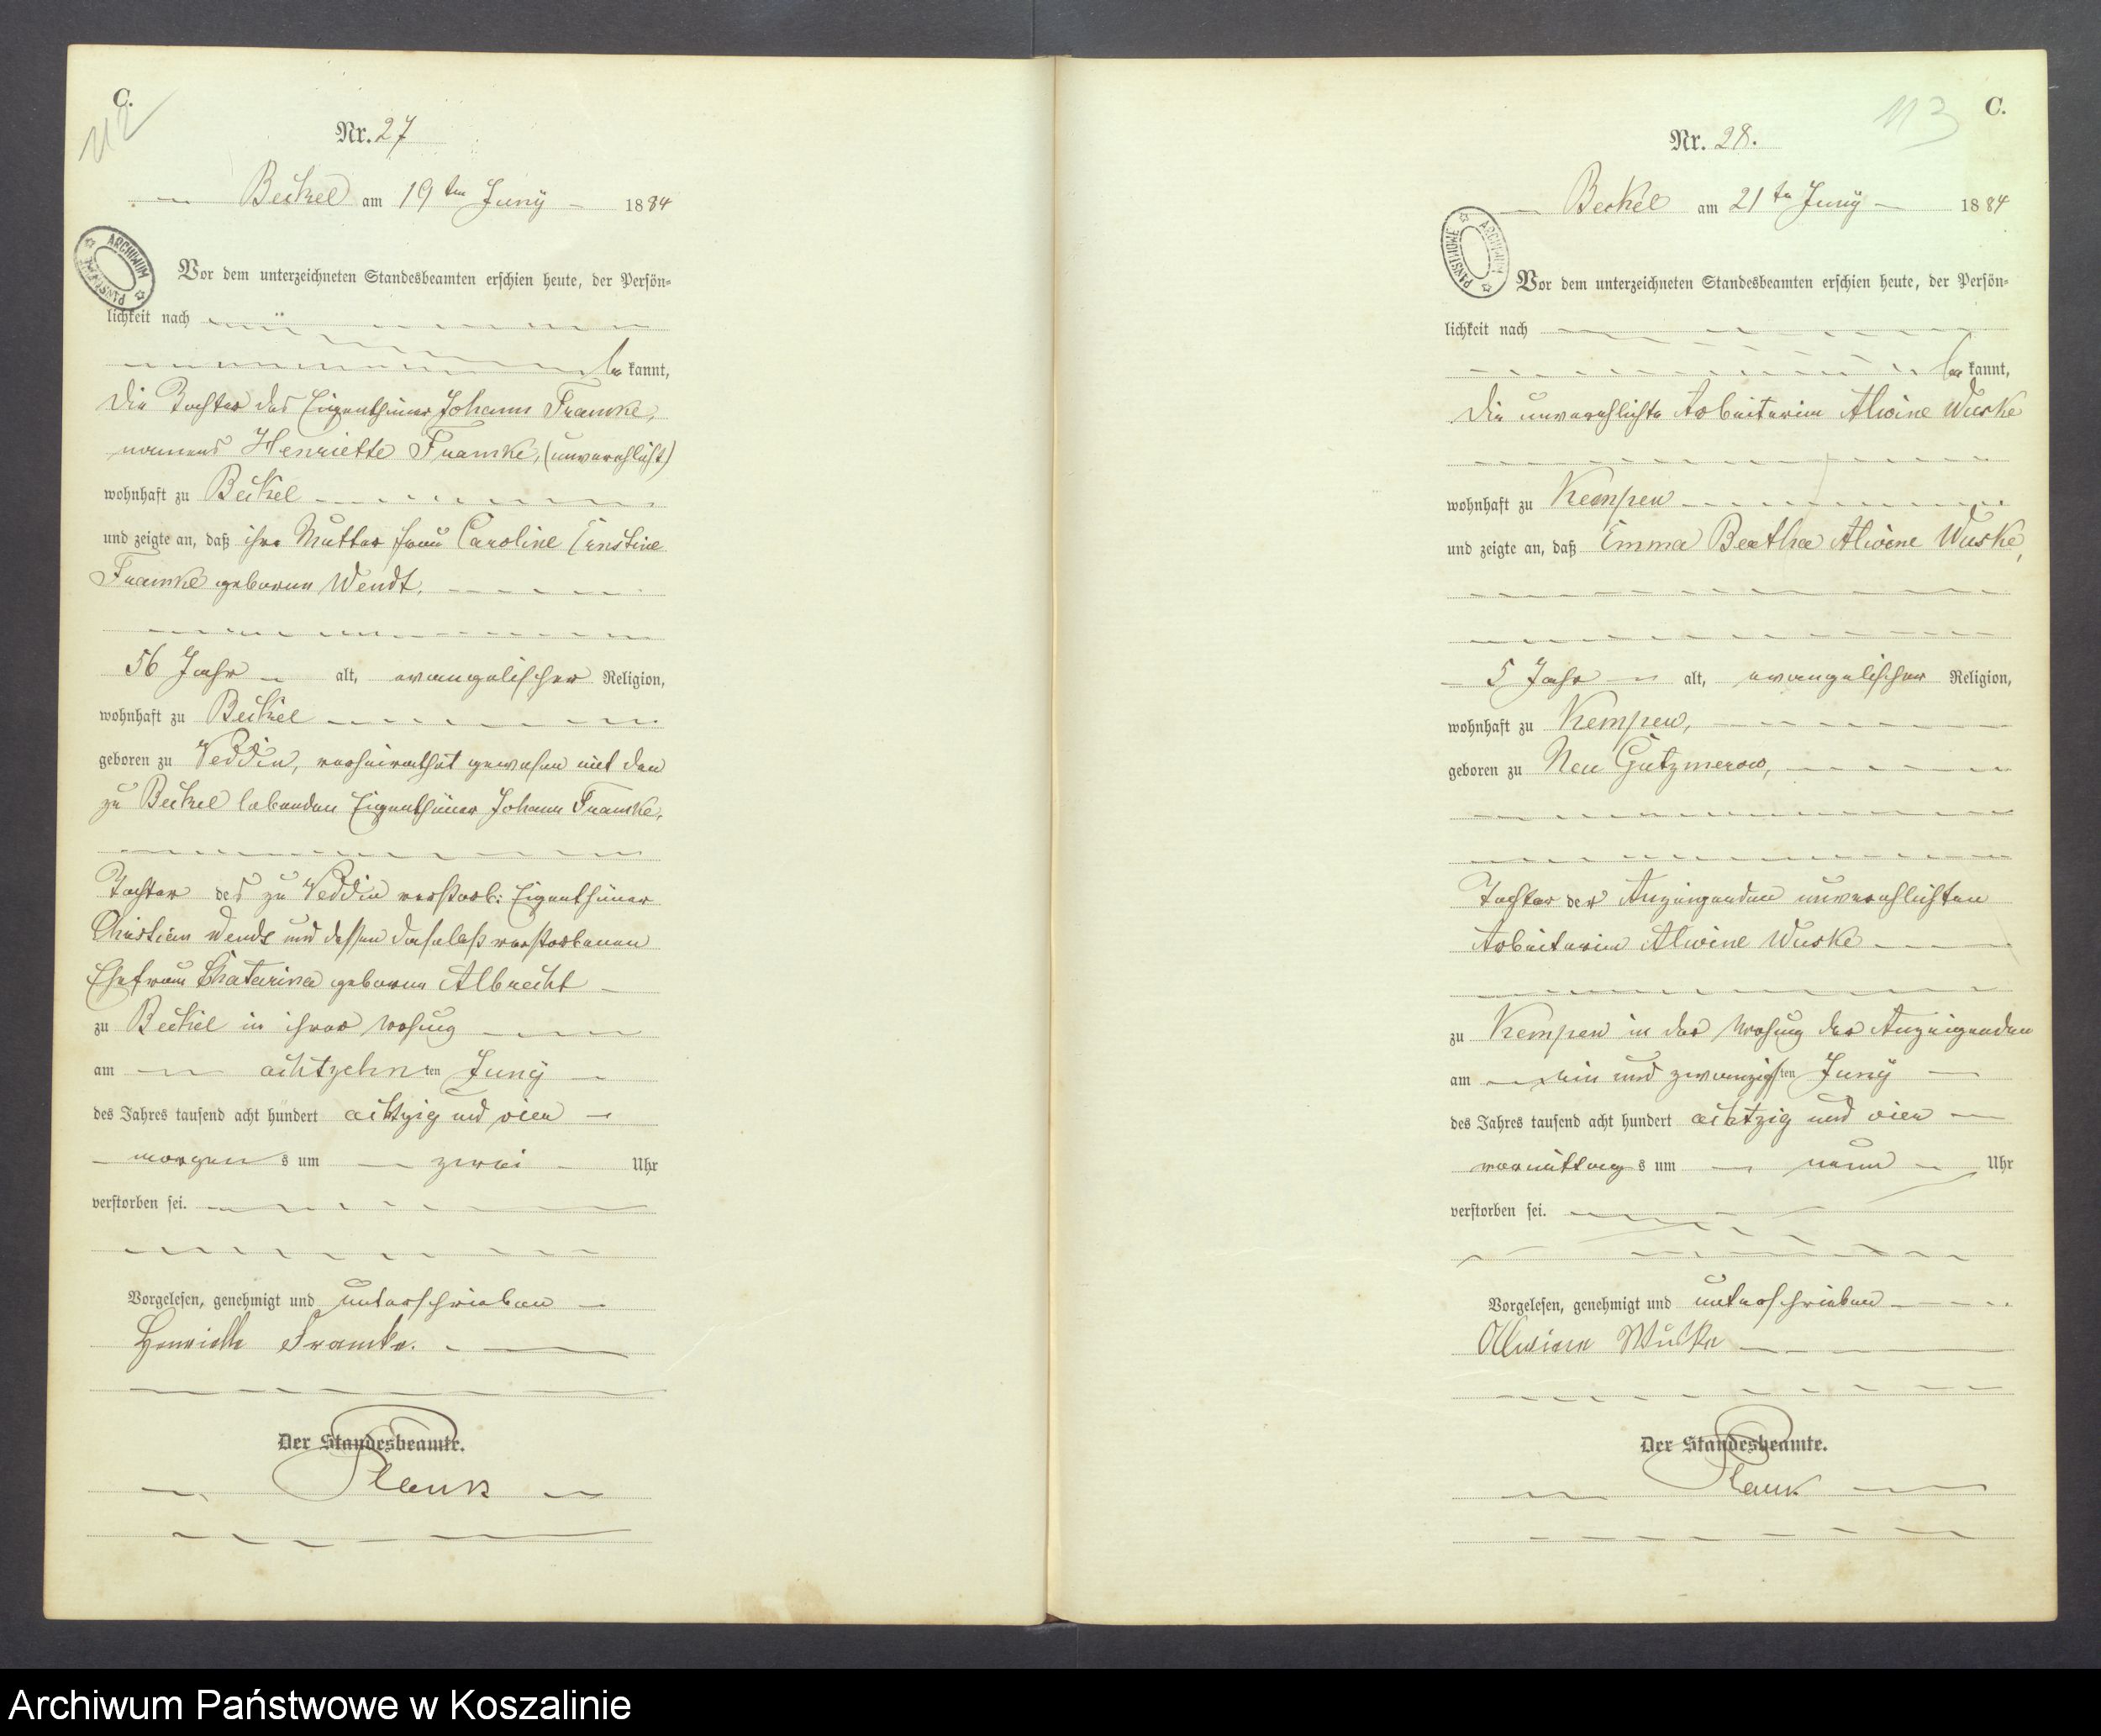 C.
112
Nr. 27
Beckel am 19ten Juny 1884
ARCHIWUM PAŃSTWOWE
Vor dem unterzeichneten Standesbeamten erschien heute, der Persön-
lichkeit nach
be kannt,
die Tochter des Eigenthümer Johann Framke,
namens Henriette Framke, (unverehlicht)
wohnhaft zu Beckel
und zeigte an, daß ihre Mutter Frau Caroline Ernstine
Framke geboren Wendt,
56 Jahr alt, evangelischer Religion,
wohnhaft zu Beckel
geboren zu Veddin, verheirathet gewesen mit den
zu Beckel lebenden Eigenthümer Johann Framke,
Tochter des zu Veddin verstorb: Eigenthümer
Christian Wendt und dessen daselbst verstorbenen
Ehefrau Chatarina geboren Albrecht
zu Beckel in ihrer Wohung
am achtzehn ten Juny
des Jahres tausend acht hundert achtzig und vier
morgen s um zwei Uhr
verstorben sei.
Vorgelesen, genehmigt und unterschrieben
Henriette Framke.
Der Standesbeamte.
Plank
113
C.
Nr. 28.
Beckel am 21te Juny 1884
ARCHIWUM PAŃSTWOWE
Vor dem unterzeichneten Standesbeamten erschien heute, der Persön-
lichkeit nach
be kannt,
die unverehlichte Arbeiterin Alwine Wuske
wohnhaft zu Kempen
und zeigte an, daß Emma Bertha Alwine Wuske,
5 Jahr alt, evangelischer Religion,
wohnhaft zu Kempen,
geboren zu Neu Gutzmerow,
Tochter der Anzeigenden unverehlichten
Arbeiterin Alwine Wuske
zu Kempen in der Wohung der Anzeigenden
am ein und zwanzigsten Juny
des Jahres tausend acht hundert achtzig und vier
vormittag s um neun Uhr
verstorben sei.
Vorgelesen, genehmigt und unterschrieben
Allwiene Wuske
Der Standesbeamte.
Plank
Archiwum Państwowe w Koszalinie